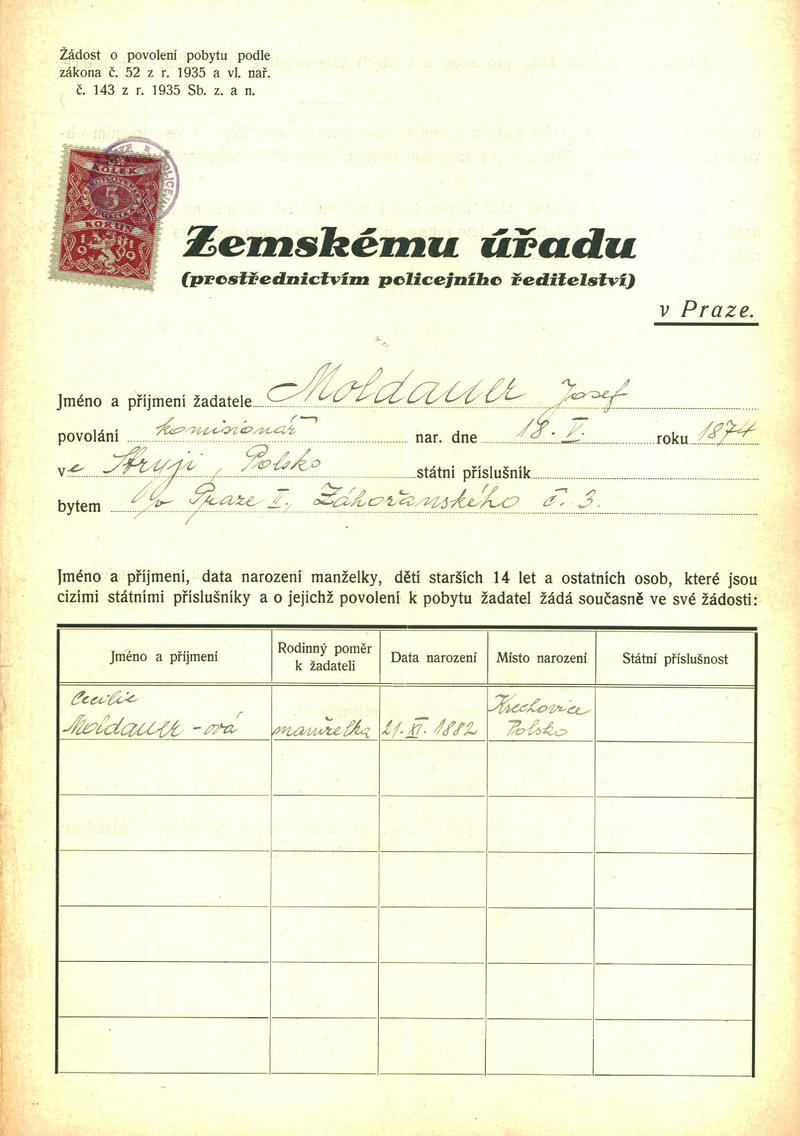 Žádost o povolení pobytu podle
zákona č. 52 z r. 1935 a vl. nař.
č. 143 z r. 1935 Sb. z. a n.
KOLEK
5
KORUN
Zemskému úřadu
(prostřednictvím policejního ředitelství)
v Praze.
Jméno a příjmení žadatele Moldauer Josef
povolání komisionář nar. dne 18. V. roku 1874
ve Stryji, Polsko státní příslušník
bytem v Praze II., Záhořanského č. 3.
Jméno a příjmení, data narození manželky, dětí starších 14 let a ostatních osob, které jsou
cizími státními příslušníky a o jejichž povolení k pobytu žadatel žádá současně ve své žádosti:
Jméno a příjmení Rodinný poměr k žadateli Data narození Místo narození Státní příslušnost
Cecilie Krechovice
Moldauer-ová manželka 21. XI. 1882 Polsko